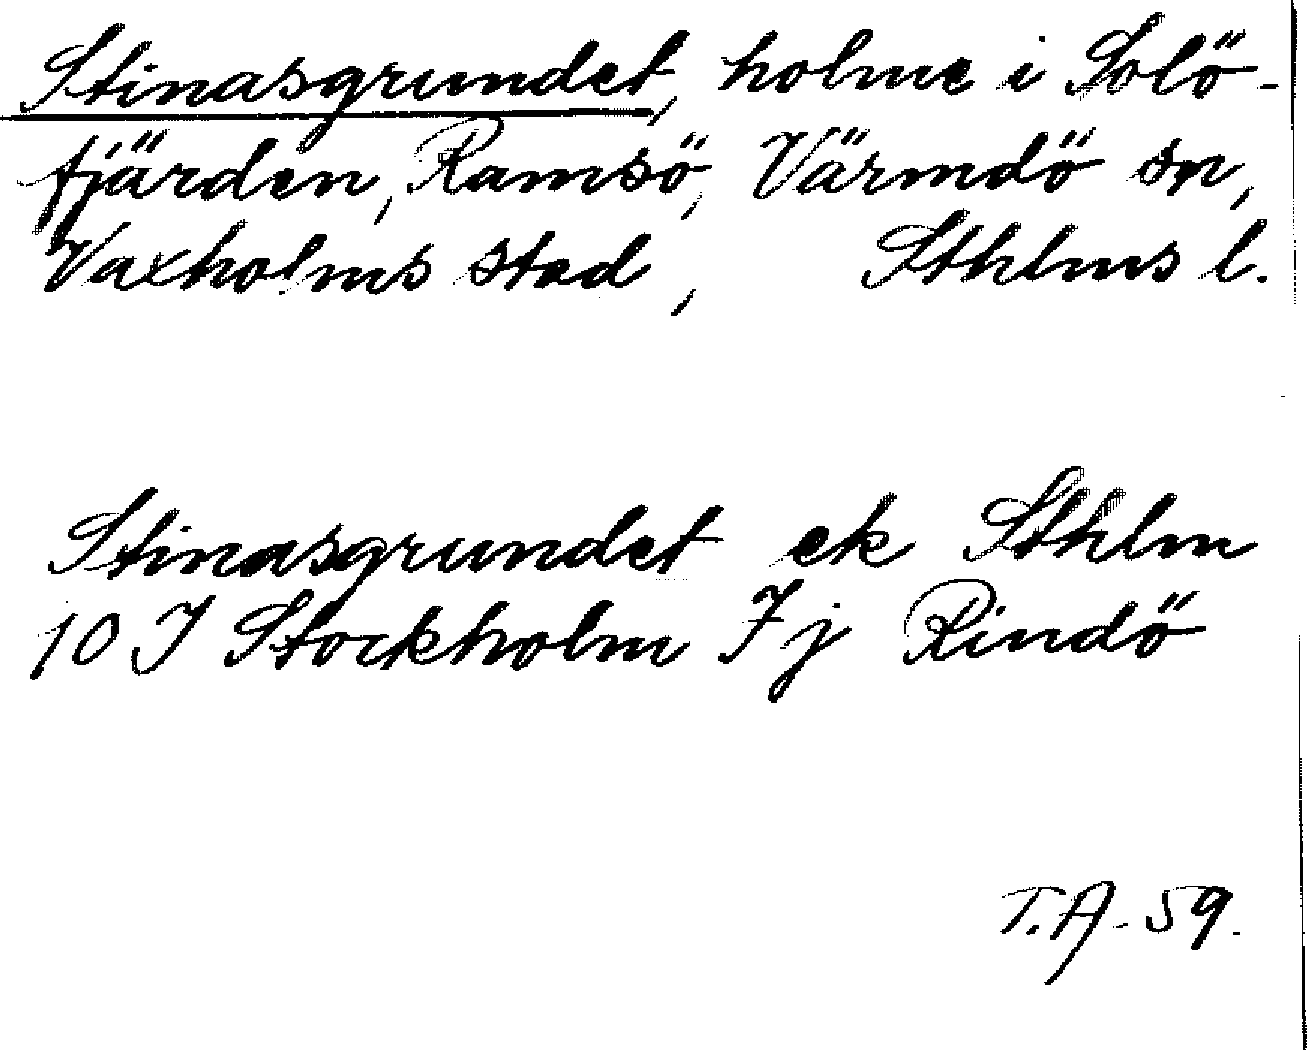 Stinasgrundet, holme i Solö-
fjärden, Ramsö, Värmdö sn,
Vaxholms stad, Sthlms l.
Stinasgrundet ek Sthlm
10 I Stockholm 7 j Rindö
T.A. 59.